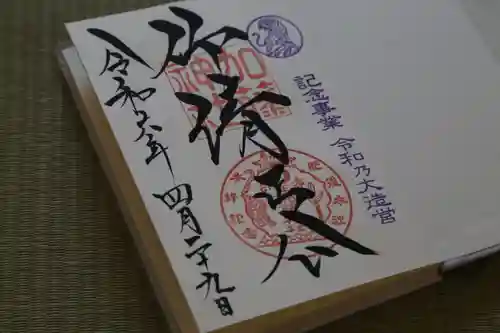 記念事業 令和乃大造営
清正公
加藤
神社
令和六年 四月二十九日